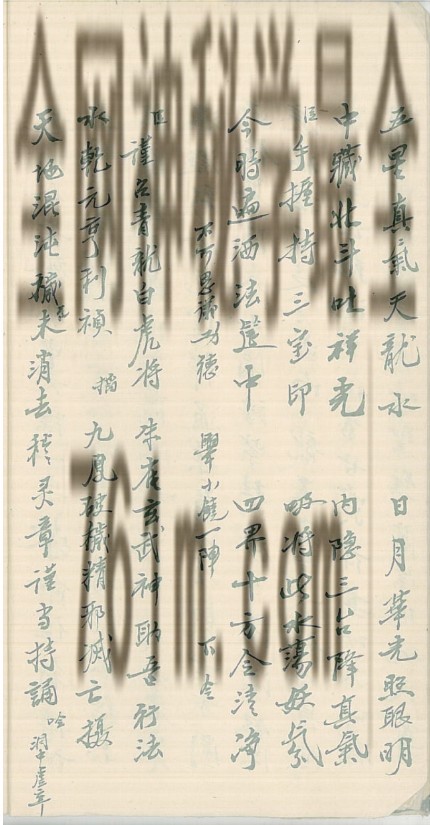 五星真氣天龍水 日月華光照眼明
中藏北斗吐祥光 內隱三台降真氣
手握持三宝印 吸將此水蕩妖氛
今時遍洒法筵中 四界十方令清淨
不可思議功德 舉小饒一陣 下仝
謹召青龍白虎將 朱雀玄武神助吾行法
水乾元亨利禎 九鳳破穢精邪滅亡攝
天地混沌穢未消去 灵章謹当持誦
76 m.com